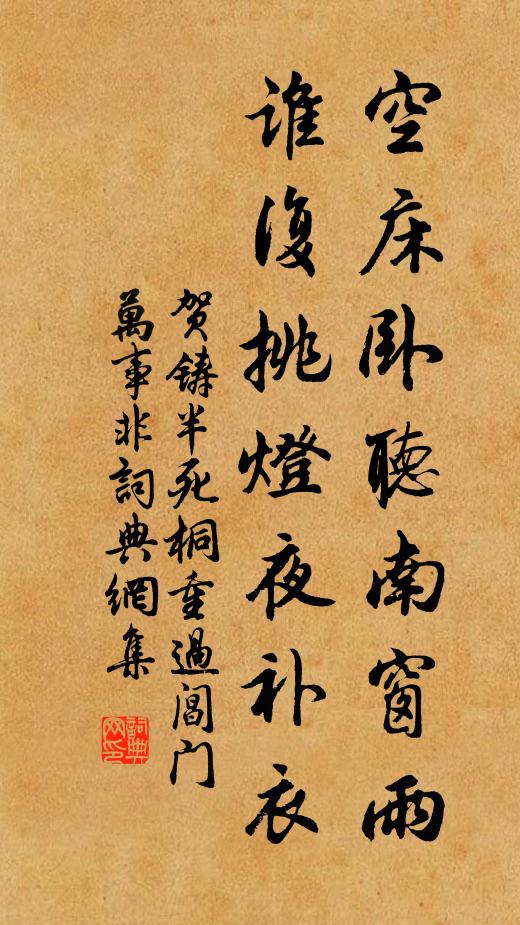 空床卧聽南窗雨
谁復挑燈夜补衣
贺铸半死桐重過閶门
萬事非詞典網集
詞典网印